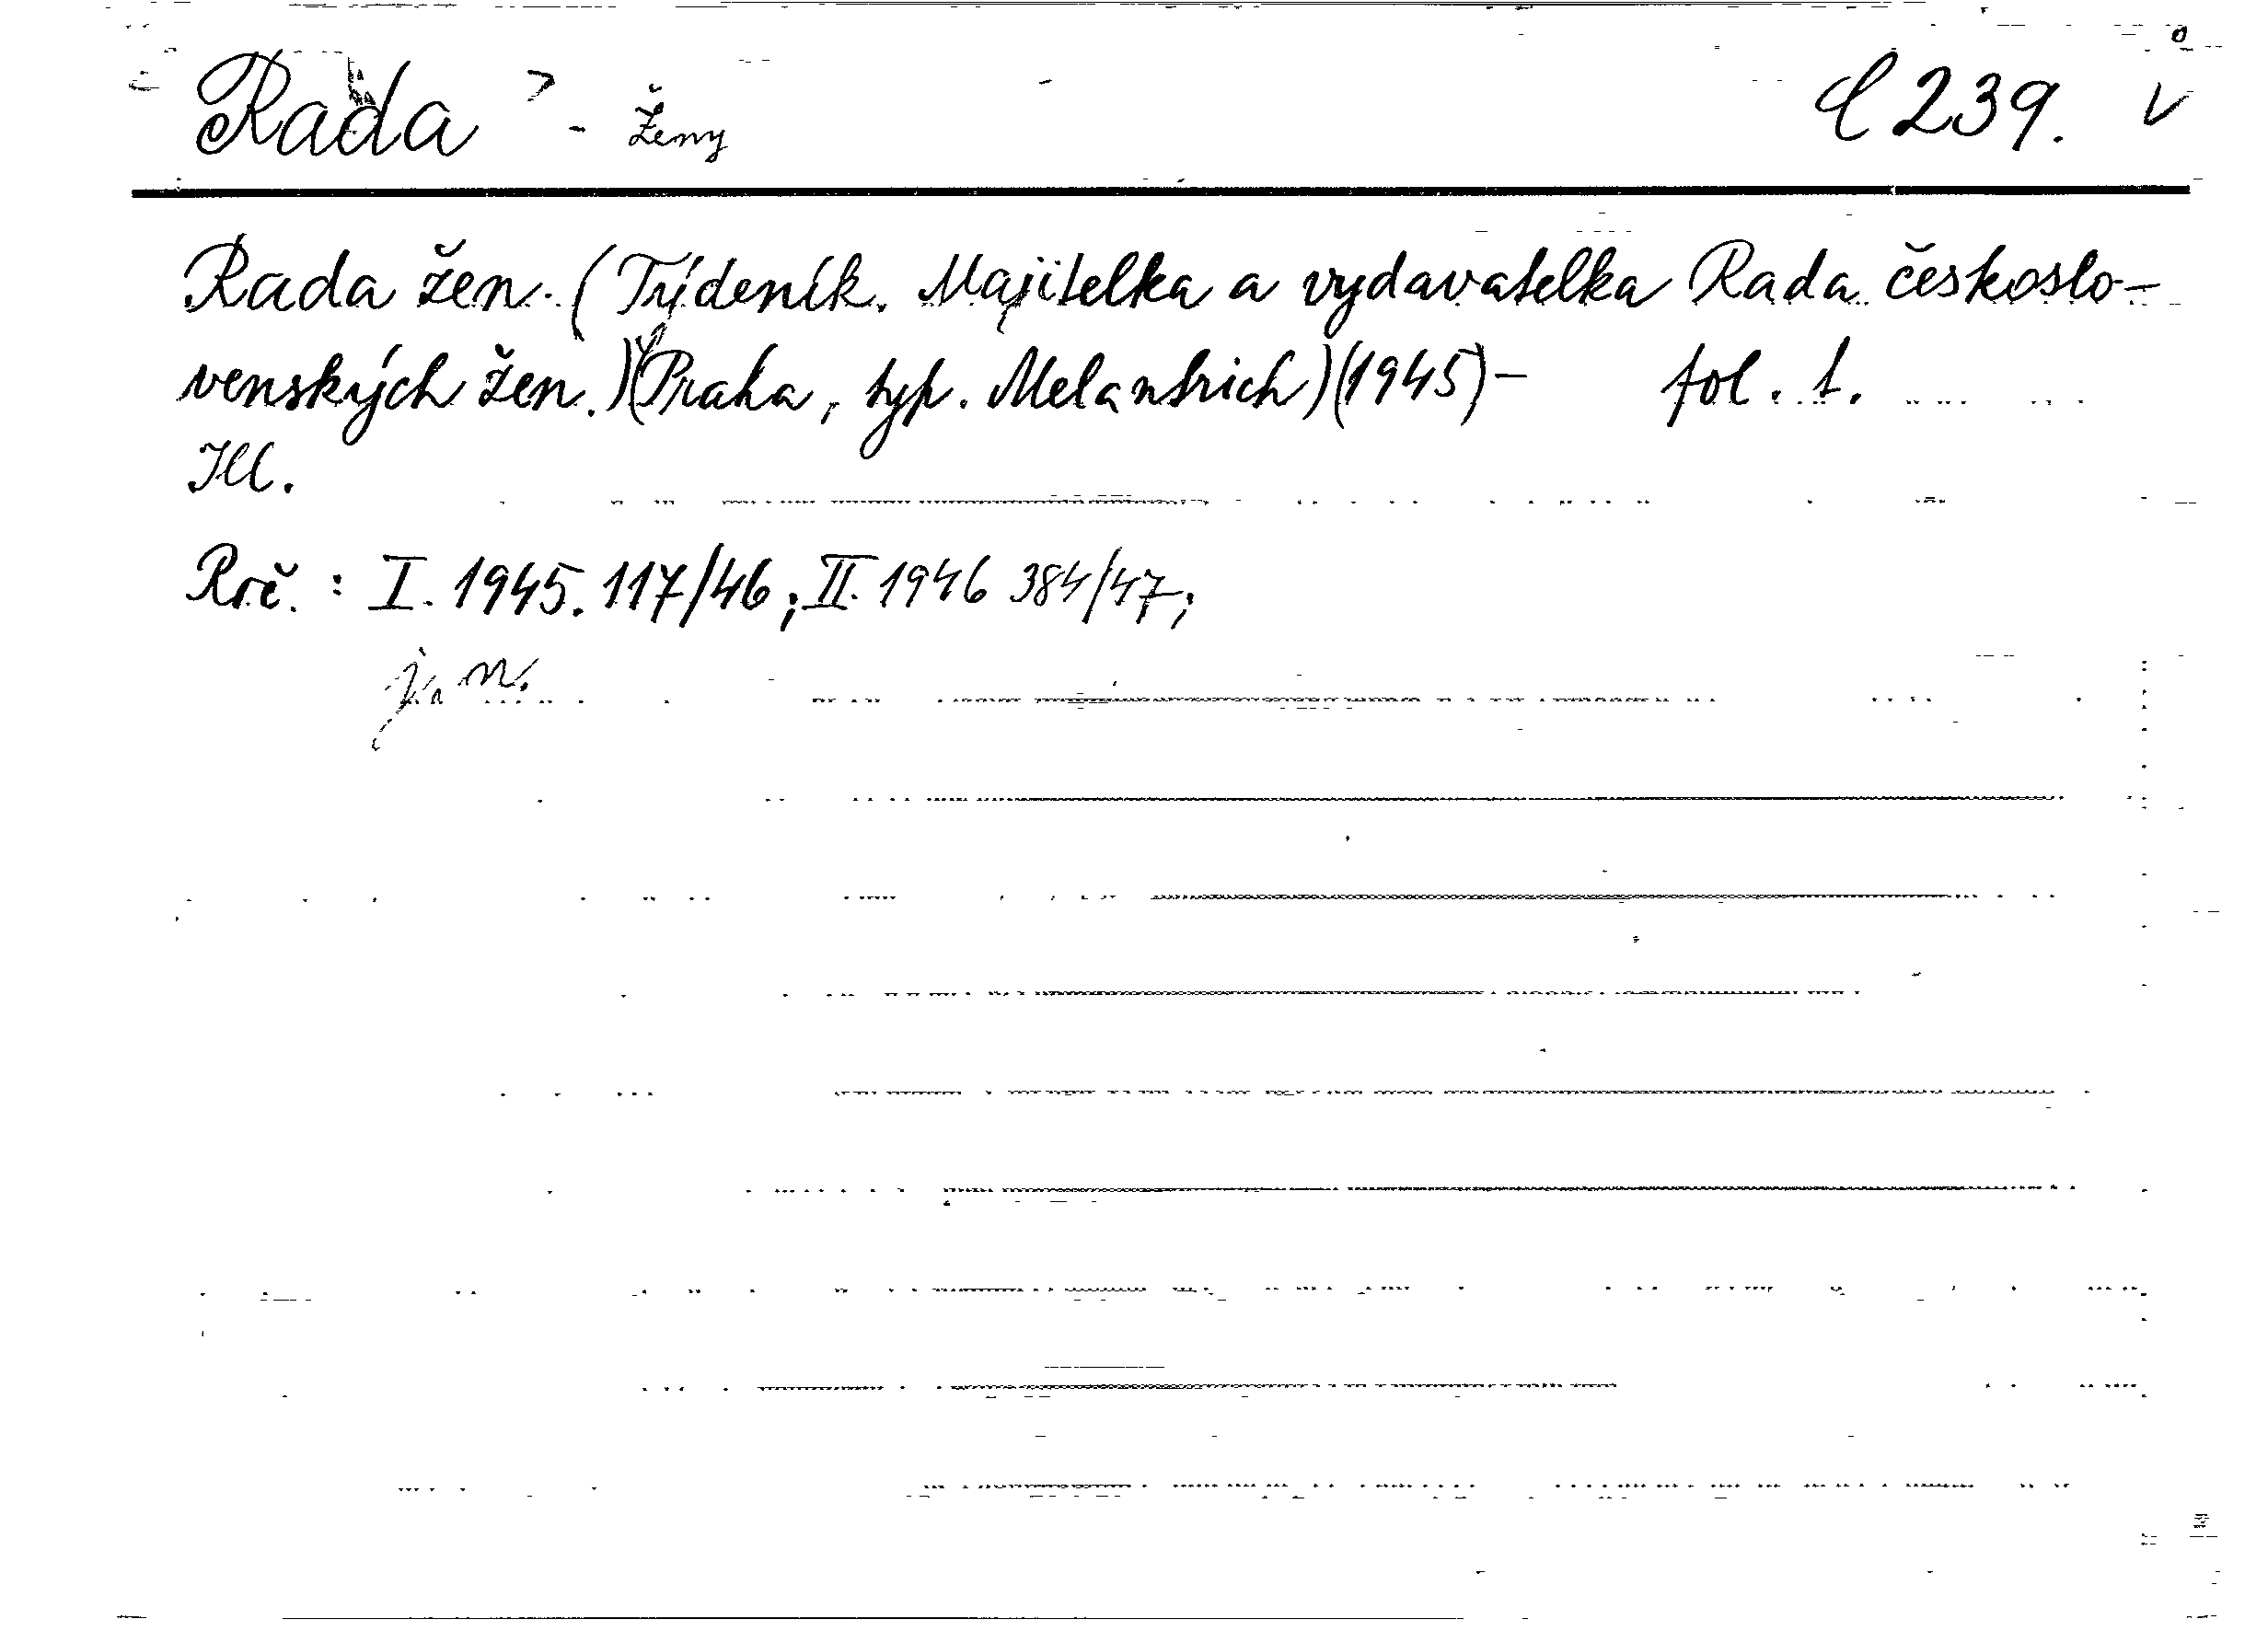 Rada - Ženy C 239. V
Rada žen. (Týdeník. Majitelka a vydavatelka Rada českoslo-
venských žen.) (Praha, typ. Melantrich) (1945) - fol. t.
Ill.
Roč. : I. 1945. 117/46; II. 1946 384/47;
j. n.